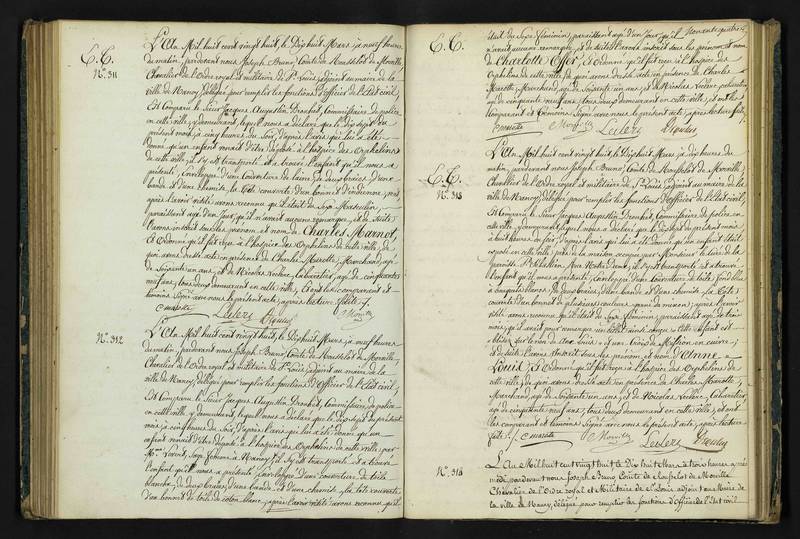 E.C.
N.° 311
L'An Mil huit cent vingt huit, le Dix huit Mars, à neuf heures
du matin, pardevant nous Joseph Bruno, Comte de Mousblot de Moraille,
Chevalier de l'Ordre royal et militaire de St Louis, adjoint au maire de la
ville de Nancy, délégué pour remplir les fonctions d'Officier de l'Etat civil,
Est Comparu le Sieur Jacques Augustin Commissaire de police
en cette ville, y demeurant, lequel nous a déclaré que le Dix sept du
présent mois, à cinq heures du soir, d'après l'avis qui lui a été
donné qu'un enfant venait d'être déposé à l'hospice des Orphelins
de cette ville, il s'y est transporté et a trouvé l'enfant qu'il nous a
présenté, enveloppé d'une couverture de laine, de deux braies, d'une
bande et d'une chemise, la tête couverte d'un bonnet d'indienne, et
après l'avoir visité avons reconnu qu'il était du Sexe Masculin,
paraissant âgé d'un jour, qu'il n'avait aucune remarque, et de suite,
l'avons inscrit sous les prénom et nom de Charles Marnot,
Et Ordonné qu'il fût reçu à l'hospice des Orphelins de cette ville, de
quoi avons dressé acte en présence de Charles Marotte, Marchand, âgé
de Soixante un ans, et de Nicolas Leclerc, Cabaretier, âgé de cinquante
neuf ans, tous deux demeurant en cette ville, Et ont les comparant et
témoins Signé avec nous le présent acte, après lecture faite.
C marotte Leclerc
N.° 312
L'An Mil huit cent vingt huit, le Dix huit Mars, à neuf heures
du matin, pardevant nous Joseph Bruno, Comte de Mousblot de Moraille,
Chevalier de l'Ordre royal et militaire de St Louis, adjoint au maire de la
ville de Nancy, délégué pour remplir les fonctions d'Officier de l'Etat civil,
Est Comparu le Sieur Jacques Augustin Commissaire de police
en cette ville, y demeurant, lequel nous a déclaré que le Dix sept du présent
mois, à cinq heures du Soir, d'après l'avis qui lui a été donné qu'un
enfant venait d'être déposé à l'hospice des Orphelins de cette ville, par
Sage femme à Nancy, il s'y est transporté et a trouvé
l'enfant qu'il nous a présenté, enveloppé d'une couverture de toile
blanche, de deux braies, d'une bande et d'une chemise, la tête couverte
d'un bonnet de toile de coton blanc, après l'avoir visité avons reconnu qu'il
E.C.
était du Sexe féminin, paraissant âgé d'un jour, qu'il
n'avait aucune remarque, et de suite l'avons inscrit sous les prénom et nom
de Charlotte Offer, Et Ordonné qu'il fût reçu à l'hospice des
Orphelins de cette ville, de quoi avons dressé acte en présence de Charles
Marotte, Marchand, âgé de Soixante un ans, et de Nicolas Leclerc, cabaretier,
âgé de cinquante neuf ans, tous deux demeurant en cette ville, et ont les
Comparant et témoins Signé avec nous le présent acte, après lecture faite.
C marotte Leclerc
E.C.
N.° 313
L'An Mil huit cent vingt huit, le Dix huit Mars, à dix heures du
matin, pardevant nous Joseph Bruno, Comte de Mousblot de Moraille,
Chevalier de l'Ordre royal et militaire de St Louis, adjoint au maire de la
ville de Nancy, délégué pour remplir les fonctions d'Officier de l'Etat civil,
Est Comparu le Sieur Jacques Augustin Commissaire de police en
cette ville, y demeurant, lequel nous a déclaré que le Dix sept du présent mois,
à huit heures du soir, d'après l'avis qui lui a été donné qu'un enfant était
exposé en cette ville, près de la maison occupée par Monsieur le curé de la
paroisse St Sébastien, il s'y est transporté et a trouvé
l'enfant qu'il nous a présenté, enveloppé d'une couverture de toile
de deux braies, d'une bande et d'une chemise, la tête
couverte d'un bonnet de plusieurs couleurs après l'avoir
visité avons reconnu qu'il était du Sexe féminin, paraissant âgé de trois
mois, qu'il avait pour remarque un billet ainsi conçu
et une Croix de Mission en cuivre,
et de suite l'avons inscrit sous les prénom et nom d'Anne
Louis, Et Ordonné qu'il fût reçu à l'hospice des Orphelins de
cette ville, de quoi avons dressé acte en présence de Charles Marotte,
Marchand, âgé de Soixante un ans, et de Nicolas Leclerc, Cabaretier,
âgé de cinquante neuf ans, tous deux demeurant en cette ville, et ont
les comparant et témoins Signé avec nous le présent acte, après lecture
faite. C marotte Leclerc
N.° 314
L'An Mil huit cent vingt huit le Dix huit Mars à trois heures après
midi pardevant nous Joseph Bruno Comte de Mousblot de Moraille
Chevalier de l'Ordre royal et Militaire de St Louis adjoint au Maire de
la ville de Nancy, délégué pour remplir les fonctions d'Officier de l'Etat civil